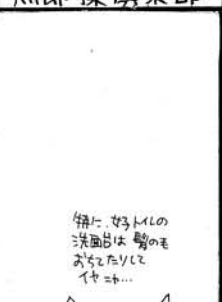 特に、女子トイレの
洗面台は 髪の毛
おちてたりして
イヤ ニャ…